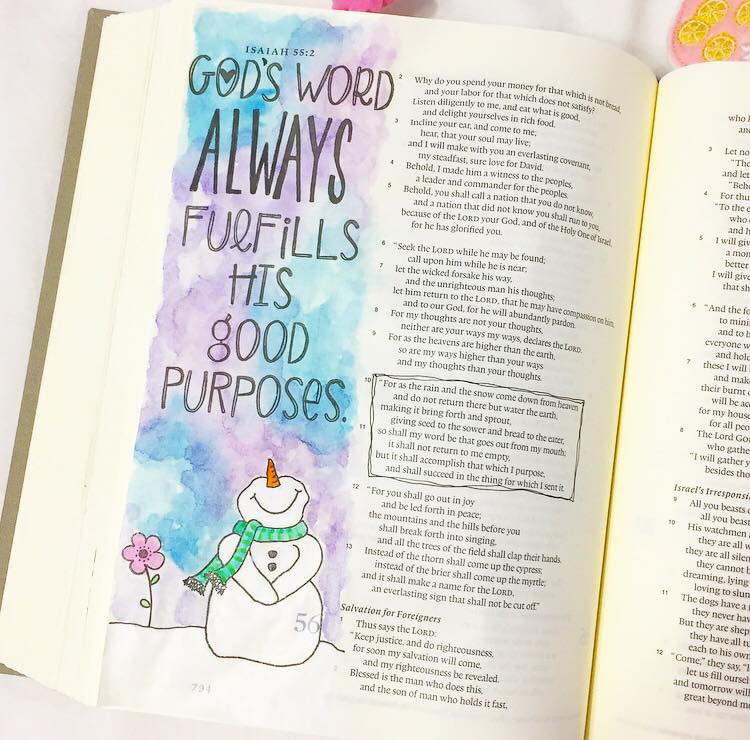 ISAIAH 55:2
GOD'S WORD
ALWAYS
FULFILLS
HIS
GOOD
PURPOSES.
794
2 Why do you spend your money for that which is not bread,
and your labor for that which does not satisfy?
Listen diligently to me, and eat what is good,
and delight yourselves in rich food.
3 Incline your ear, and come to me;
hear, that your soul may live;
and I will make with you an everlasting covenant,
my steadfast, sure love for David.
4 Behold, I made him a witness to the peoples,
a leader and commander for the peoples.
5 Behold, you shall call a nation that you do not know,
and a nation that did not know you shall run to you,
because of the LORD your God, and of the Holy One of Israel,
for he has glorified you.
6 "Seek the LORD while he may be found;
call upon him while he is near;
7 let the wicked forsake his way,
and the unrighteous man his thoughts;
let him return to the LORD, that he may have compassion on him,
and to our God, for he will abundantly pardon.
8 For my thoughts are not your thoughts,
neither are your ways my ways, declares the LORD.
9 For as the heavens are higher than the earth,
so are my ways higher than your ways
and my thoughts than your thoughts.
10 "For as the rain and the snow come down from heaven
and do not return there but water the earth,
making it bring forth and sprout,
giving seed to the sower and bread to the eater,
11 so shall my word be that goes out from my mouth;
it shall not return to me empty,
but it shall accomplish that which I purpose,
and shall succeed in the thing for which I sent it.
12 "For you shall go out in joy
and be led forth in peace;
the mountains and the hills before you
shall break forth into singing,
and all the trees of the field shall clap their hands.
13 Instead of the thorn shall come up the cypress;
instead of the brier shall come up the myrtle;
and it shall make a name for the LORD,
an everlasting sign that shall not be cut off."
Salvation for Foreigners
56 1 Thus says the LORD:
"Keep justice, and do righteousness,
for soon my salvation will come,
and my righteousness be revealed.
2 Blessed is the man who does this,
and the son of man who holds it fast,
who
and
3 Let no
"The
and let
"Beho
4 For thu
"To the e
who
and h
5 I will giv
a mon
better
I will give
that sh
6 "And the fo
to minis
and to b
everyone w
and hold
7 these I will
and mak
their burnt o
will be ac
for my house
for all peo
8 The Lord GO
who gathe
"I will gather y
besides tho
Israel's Irresponsi
9 All you beasts o
all you beas
10 His watchmen a
they are all w
they are all silen
they cannot b
dreaming, lying
loving to slum
11 The dogs have a
they never hav
But they are shep
they have all tu
each to his own
12 "Come," they say, "l
let us fill oursel
and tomorrow will
great beyond me